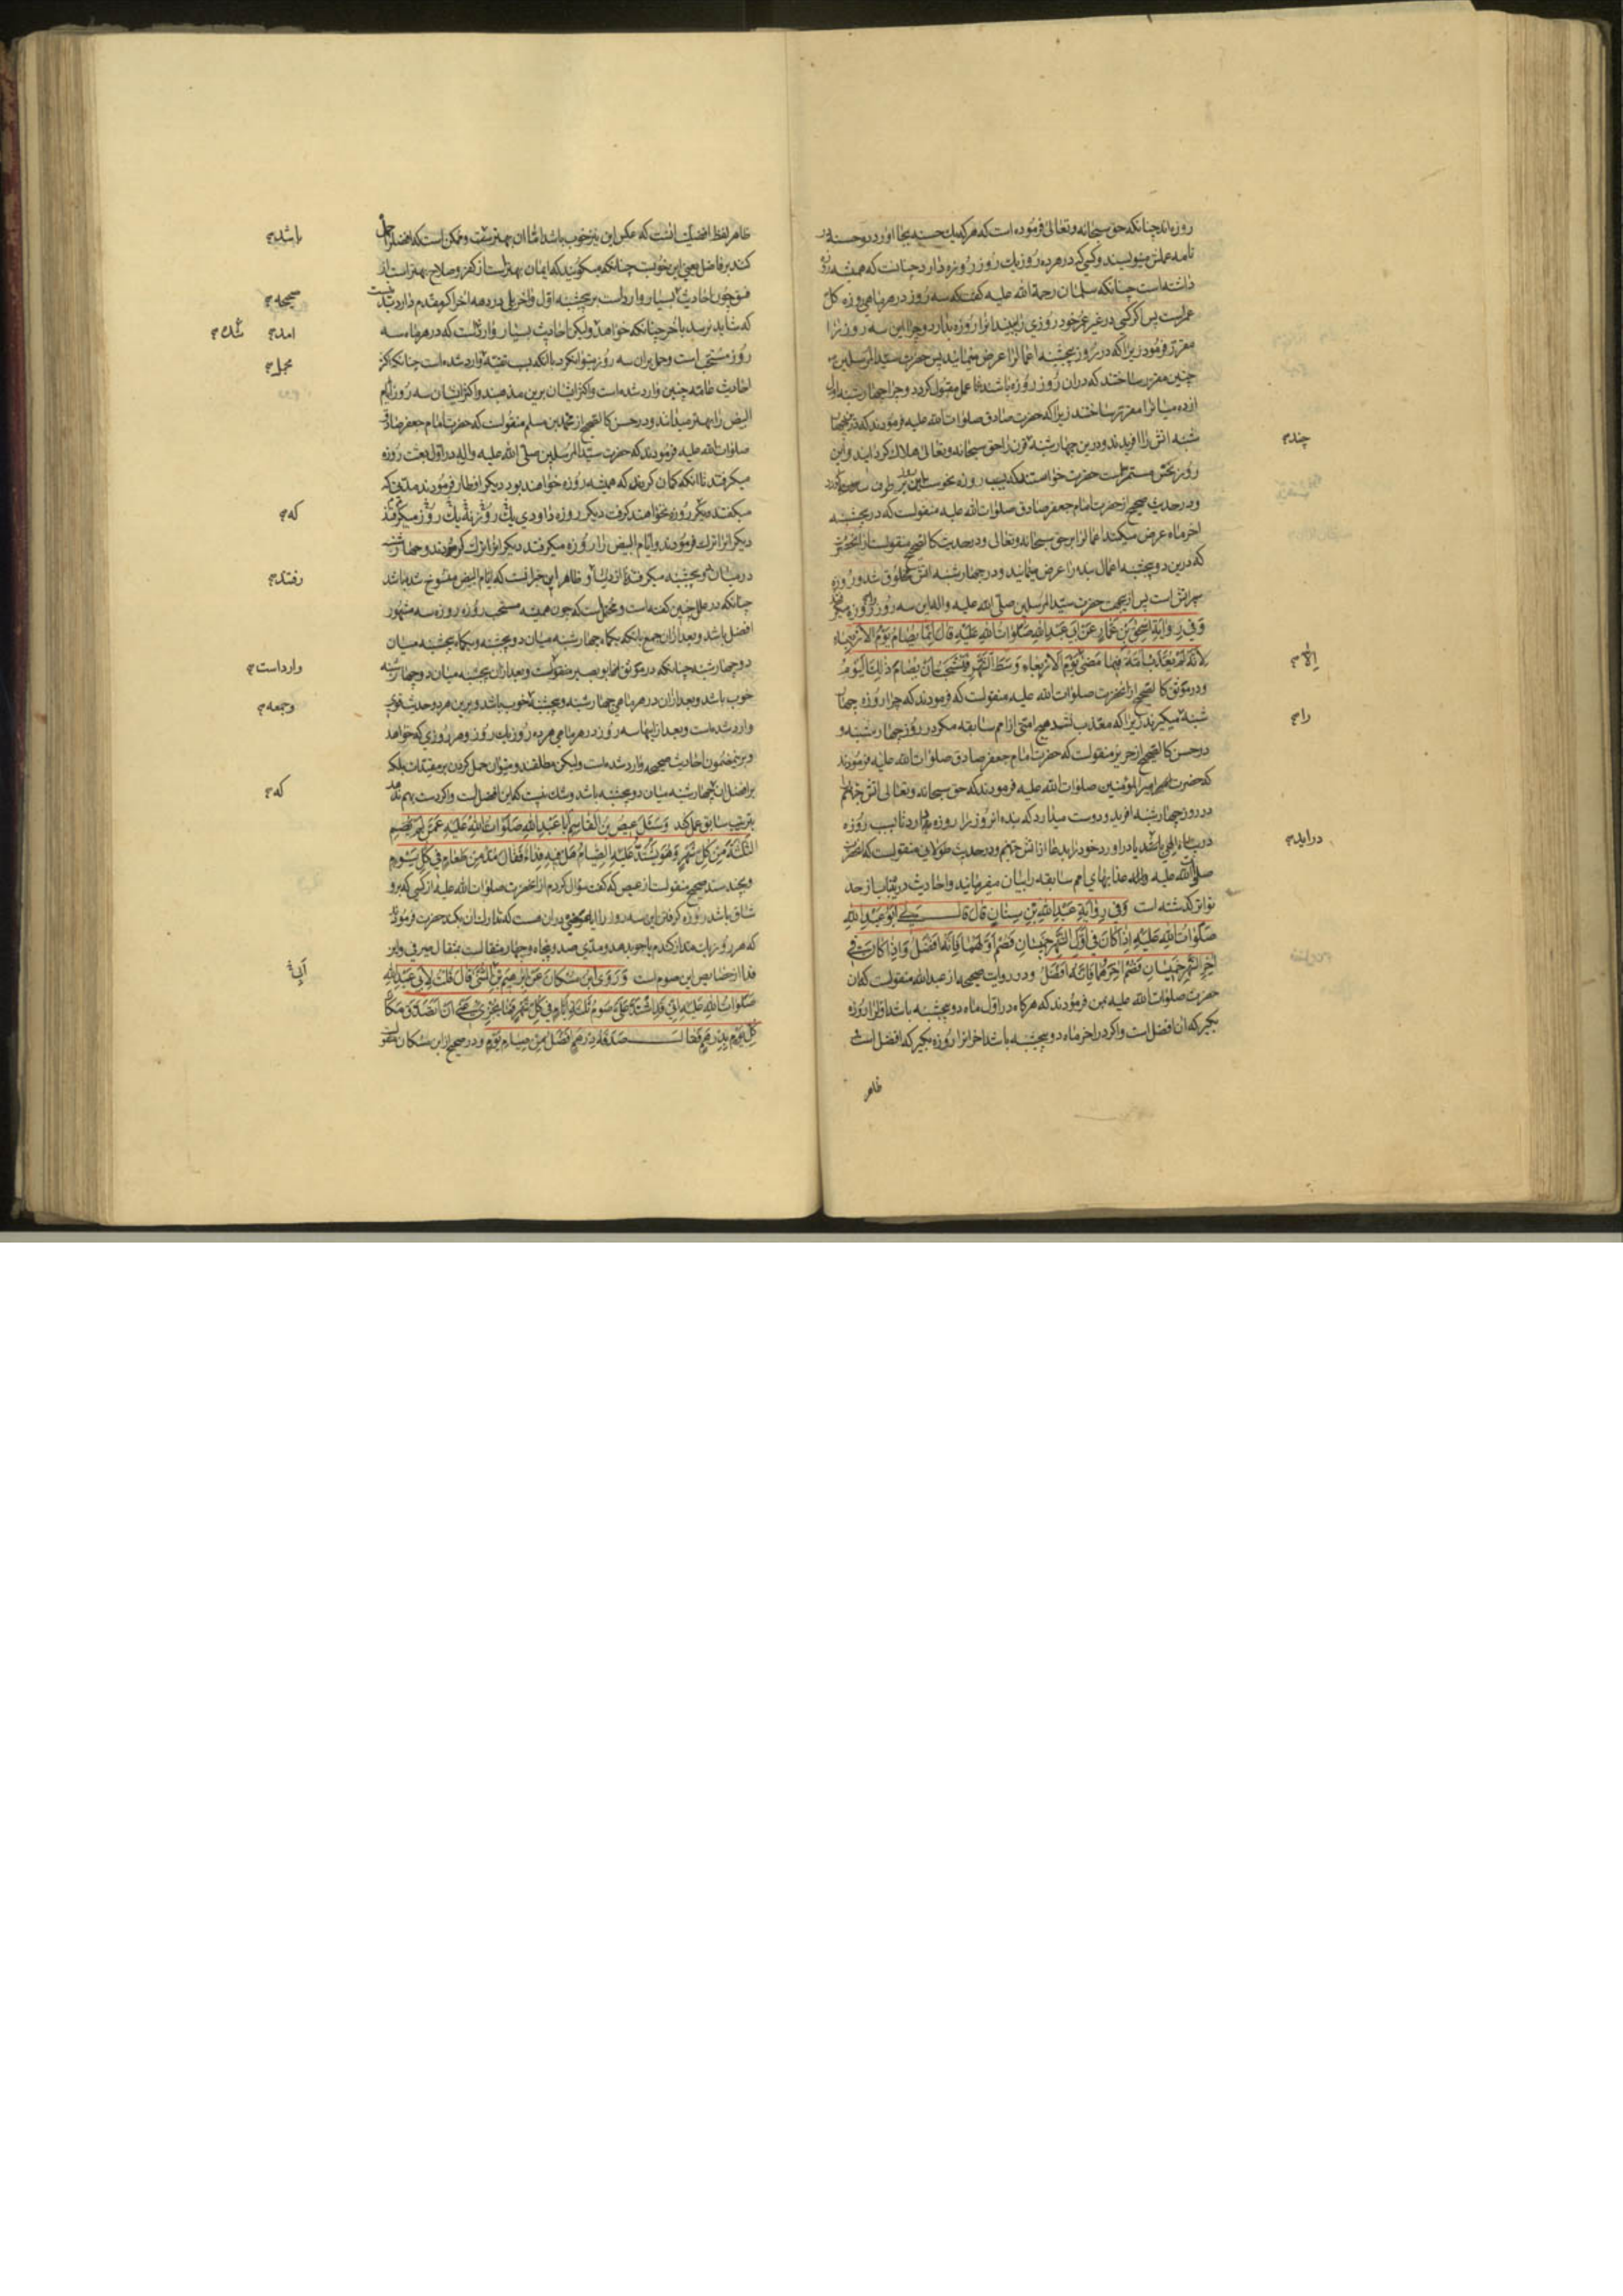 روزه اند چنانکه حق سبحانه و تعالی فرموده است که هر که یک حسنه بجا اورد ده حسنه در
نامه عملش مینویسند و کسی که در هر ده روز یک روز روزه دارد چنانست که همیشه روزه
داشته است چنانکه سلمان رحمة الله علیه گفت که سه روز در هر ماهی روزه کل
عمر است پس اگر کسی در غیر عمر خود روزی را بیند انرا روزه بدارد و چرا این سه روز را
مقرر فرمود زیرا که در روز پنجشنبه اعمال را عرض مینمایند پس حضرت سید المرسلین
چنین مقرر ساختند که دران روز روزه باشند تا عمل مقبول گردد و چرا چهارشنبه اول
از ده میانرا مقرر ساختند زیرا که حضرت صادق صلوات الله علیه فرمودند که در چهار
شنبه اتش را افریدند و درین چهارشنبه قرن را حق سبحانه و تعالی هلاک گردانید و این
روز نحس مستمر است حضرت خواستند که بسبب روزه نحوست این روز بر طرف
و در حدیث صحیح از حضرت امام جعفر صادق صلوات الله علیه منقولست که در پنجشنبه
اخر ماه عرض میکنند اعمال را بر حق سبحانه و تعالی و در حدیث کالصحیح منقولست از انحضرت
که درین دو پنجشنبه اعمال بنده را عرض مینمایند و در چهارشنبه اتش مخلوق شد و روزه
سپر اتش است پس ازینجهت حضرت سید المرسلین صلی الله علیه و اله این سه روز روزه
وَفي رِوايَةِ اِسْحٰقَ بْنِ عَمّارٍ عَنْ اَبي عَبْدِ اللهِ صَلَواتُ اللهِ عَلَيْهِ قالَ اِنَّما يُصامُ يَوْمُ الْاَرْبِعاءِ
لِاَنَّهُ لَمْ يُعَذَّبْ اُمَّةٌ فيما مَضىٰ يَوْمَ الْاَرْبِعاءِ وَسَطَ الشَّهْرِ فَيُسْتَحَبُّ اَنْ يُصامَ ذٰلِكَ الْيَوْمُ
و در موثق کالصحیح از انحضرت صلوات الله علیه منقولست که فرمودند که چرا روزه چهار
شنبه میگیرند زیرا که معذب نشد هیچ امتی از امم سابقه مگر در روز چهارشنبه و
در حسن کالصحیح از حریز منقولست که حضرت امام جعفر صادق صلوات الله علیه فرمودند
که حضرت امیر المؤمنین صلوات الله علیه فرمودند که حق سبحانه و تعالی اتش جهنم
در روز چهارشنبه افرید و دوست میدارد که بنده انروز را روزه بدارد تا بسبب روزه
در پناه الهی و خود را بدهد از اتش جهنم و در حدیث طولانی منقولست که حضرت
صلی الله علیه و اله عذابهای امم سابقه را بیان میفرمایند و احادیث درینباب از حد
تواتر گذشته است وَفي رِوايَةِ عَبْدِ اللهِ بْنِ سِنانٍ قالَ قالَ لي اَبُو عَبْدِ اللهِ
صَلَواتُ اللهِ عَلَيْهِ اِذا كانَ في اَوَّلِ الشَّهْرِ خَميسانِ فَصُمْ اَوَّلَهُما فَاِنَّهُ اَفْضَلُ وَاِذا كانَ في
اٰخِرِ الشَّهْرِ خَميسانِ فَصُمْ اٰخِرَهُما فَاِنَّهُ اَفْضَلُ و در روایت صحیحه از عبد الله منقولست که ان
حضرت صلوات الله علیه بمن فرمودند که هر گاه در اول ماه دو پنجشنبه باشد اول را روزه
بگیر که ان افضل است و اگر در اخر ماه دو پنجشنبه باشد اخر انرا روزه بگیر که افضل است
ظاهر
چند
اِلّا
را
دراید
ظاهر لفظ افضلیت انست که عکس این نیز خوب باشد اما ان بهتر نیست و ممکن است که افضل را حمل
کنند بر فاضل یعنی این خوبست چنانکه میگویند که ایمان بهتر است از کفر و صلاح بهتر است از
فسق چون احادیث بسیار وارد است بر پنجشنبه اول و اخر
که شاید نرسد باخر چنانکه خواهد و لیکن احادیث بسیار وارد است که در هر ماه سه
روز مستحب است و حمل بران سه روز میتوانکرد یا انکه بسبب تقیه وارد شده است چنانکه اکثر
احادیث عامه چنین وارد شده است و اکثر ایشان برین مذهبند و اکثر ایشان سه روز ایام
البیض را بهتر میدانند و در حسن کالصحیح از محمد بن مسلم منقولست که حضرت امام جعفر صادق
صلوات الله علیه فرمودند که حضرت سید المرسلین صلی الله علیه و اله در اول بعثت روزه
میگرفتند تا انکه گمان کردند که همیشه روزه خواهند بود دیگر افطار فرمودند مدتی که
میگفتند دیگر روزه نخواهند گرفت دیگر روزه داودی یک روز نه یک روز میگرفتند
دیگر انرا ترک فرمودند و ایام البیض را روزه میگرفتند دیگر انرا ترک فرمودند و چهارشنبه
در میان دو پنجشنبه میگرفتند تا از دنیا و ظاهر این خبر انست که ایام البیض منسوخ شده باشد
چنانکه در علل چنین گفته است و محتمل است که چون همیشه مستحب روزه روزه سه مشهور
افضل باشد و بعد ازان جمع بانکه یکماه چهارشنبه میان دو پنجشنبه و یکماه پنجشنبه میان
دو چهارشنبه چنانکه در موثق ابو بصیر منقولست و بعد ازان پنجشنبه میان دو چهارشنبه
خوب باشد و بعد ازان در هر ماهی چهارشنبه و پنجشنبه خوب باشد و برین هر دو حدیث قوی
وارد شده است و بعد ازاینها سه روز در هر ماهی هر ده روز یک روز و هر روزی که خواهد
و برینمضمون احادیث صحیحه وارد شده است و لیکن مطلقند و میتوان حمل کردن بر مقیدات بلکه
بر افضل ان چهارشنبه میان دو پنجشنبه باشد و شک نیست که این افضل است و اگر دست بهم ندهد
بترتیب سابق عمل کند وَسَئَلَ عيصُ بْنُ الْقاسِمِ اَبا عَبْدِ اللهِ صَلَواتُ اللهِ عَلَيْهِ عَمَّنْ لَمْ يَصُمِ
الثَّلٰثَةَ مِنْ كُلِّ شَهْرٍ وَهُوَ يَشْتَدُّ عَلَيْهِ الصِّيامُ هَلْ فيهِ فِداءٌ فَقالَ مُدٌّ مِنْ طَعامٍ في كُلِّ يَوْمٍ
و بچند سند صحیح منقولست از عیص که گفت سؤال کردم از انحضرت صلوات الله علیه از کسی که برو
شاق باشد روزه گرفتن این سه روز را ایا عوضی بران هست که تدارک ان بکند حضرت فرمودند
که هر روز یک مد از گندم یا جو بدهد و مدی صد و پنجاه و چهار مثقالست بمثقال صیرفی و این
فدا از خصایص این صوم است وَرَوَى ابْنُ مُسْكانَ عَنْ اِبْرٰهيمَ بْنِ الْمُثَنّىٰ قالَ قُلْتُ لِاَبي عَبْدِ اللهِ
صَلَواتُ اللهِ عَلَيْهِ اِنّي قَدِ اشْتَدَّ عَلَيَّ صَوْمُ ثَلٰثَةِ اَيّامٍ في كُلِّ شَهْرٍ فَما يُجْزي عَنّي اَنْ اَتَصَدَّقَ مَكانَ
كُلِّ يَوْمٍ بِدِرْهَمٍ فَقالَ صَدَقَةُ دِرْهَمٍ اَفْضَلُ مِنْ صِيامِ يَوْمٍ و در صحیح از ابن مسکان
باشد
صحیحه
امد شد
مجمل
که
رفتند
وارد است
و جمعه
که